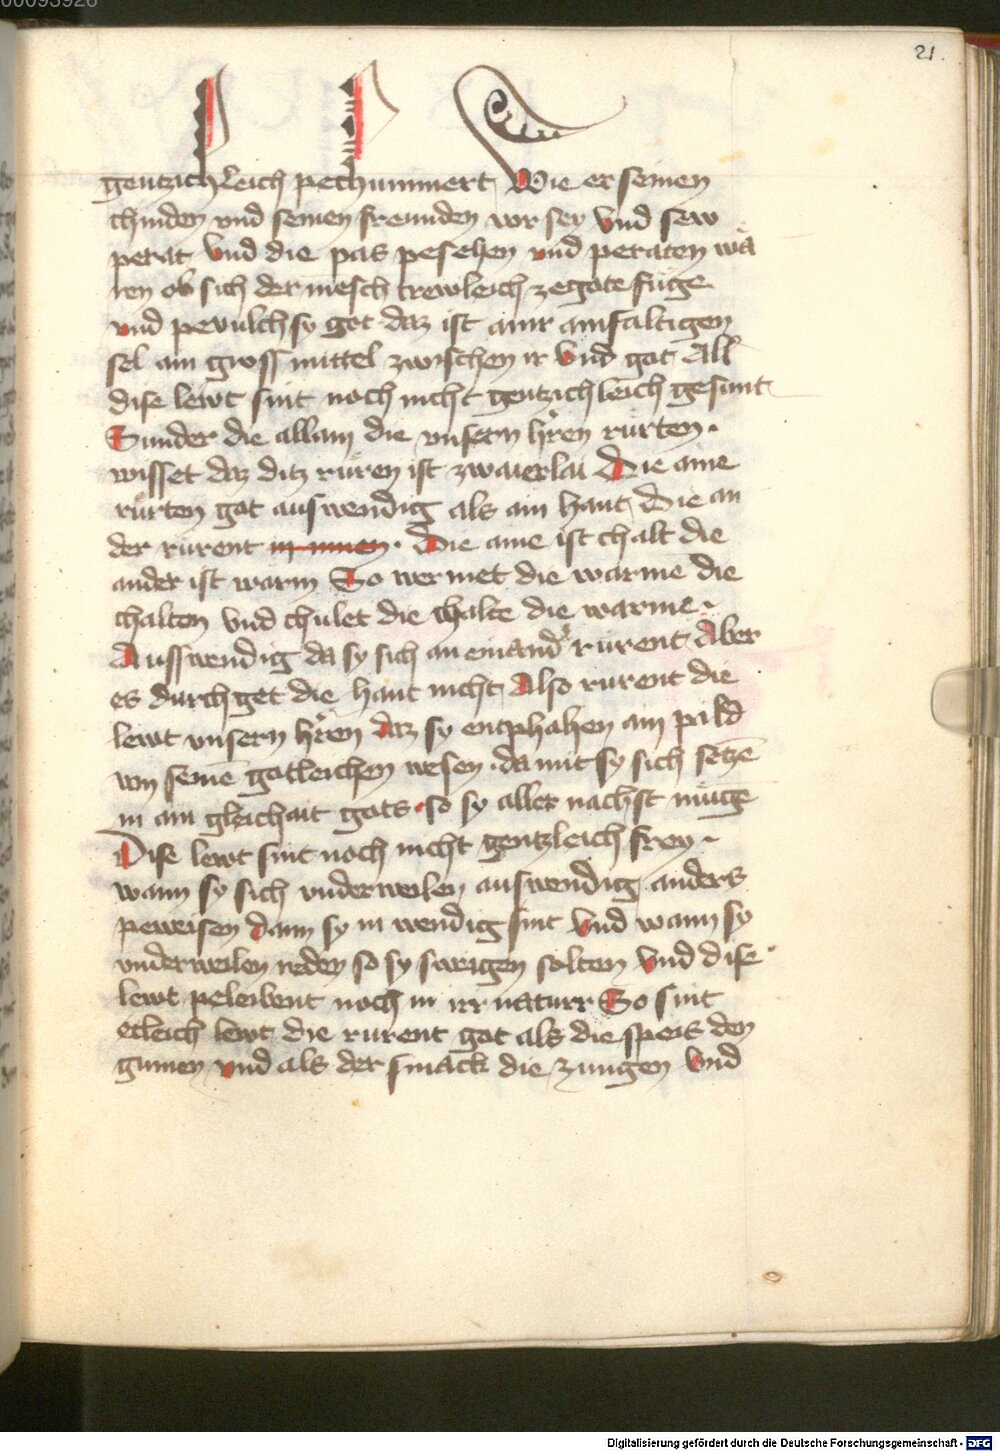 00093926
21.
gentzichleich pechummert Wie er seinen
chinden vnd seinen freunden vor sey Vnd sew
perat Vnd die pas pesehen vnd peraten wa
ren ob sich der mesch trewleich ze gote fuge
vnd pevulch sy got daz ist ainr ainfaltigen
sel ain gross mittel zwischen ir Vnd got All
dise lewt sint noch nicht gentzichleich gesunt
Sunder die allain die vnsern hren rurten.
wisset daz ditz ruren ist zwaierlai Die aine
rurten got auswendig als ain hant Die an
der rurent in innen. Die aine ist chalt die
ander ist warm So wermet die warme die
chalten vnd chulet die chalte die warme.
Ausswendig da sy sich an einand rurent Aber
es durch get die hant nicht Also rurent die
lewt vnsern hren daz sy entphahen ain pild
von seine gotleichen wesen. da mit sy sich setze
in ain gleichait gots. so sy aller nachst muge
Dise lewt sint noch nicht gentzleich frey.
wann sy sich vnderweilen auswendig anders
peweisen dann sy in wendig sint Vnd wann sy
vnderweilen reden so sy sweigen solten Vnd dise
lewt peleibent noch in irr naturr So sint
etleich lewt die rurent got als die speis den
gumen vnd als der smack die zungen Vnd
Digitalisierung gefördert durch die Deutsche Forschungsgemeinschaft - DFG